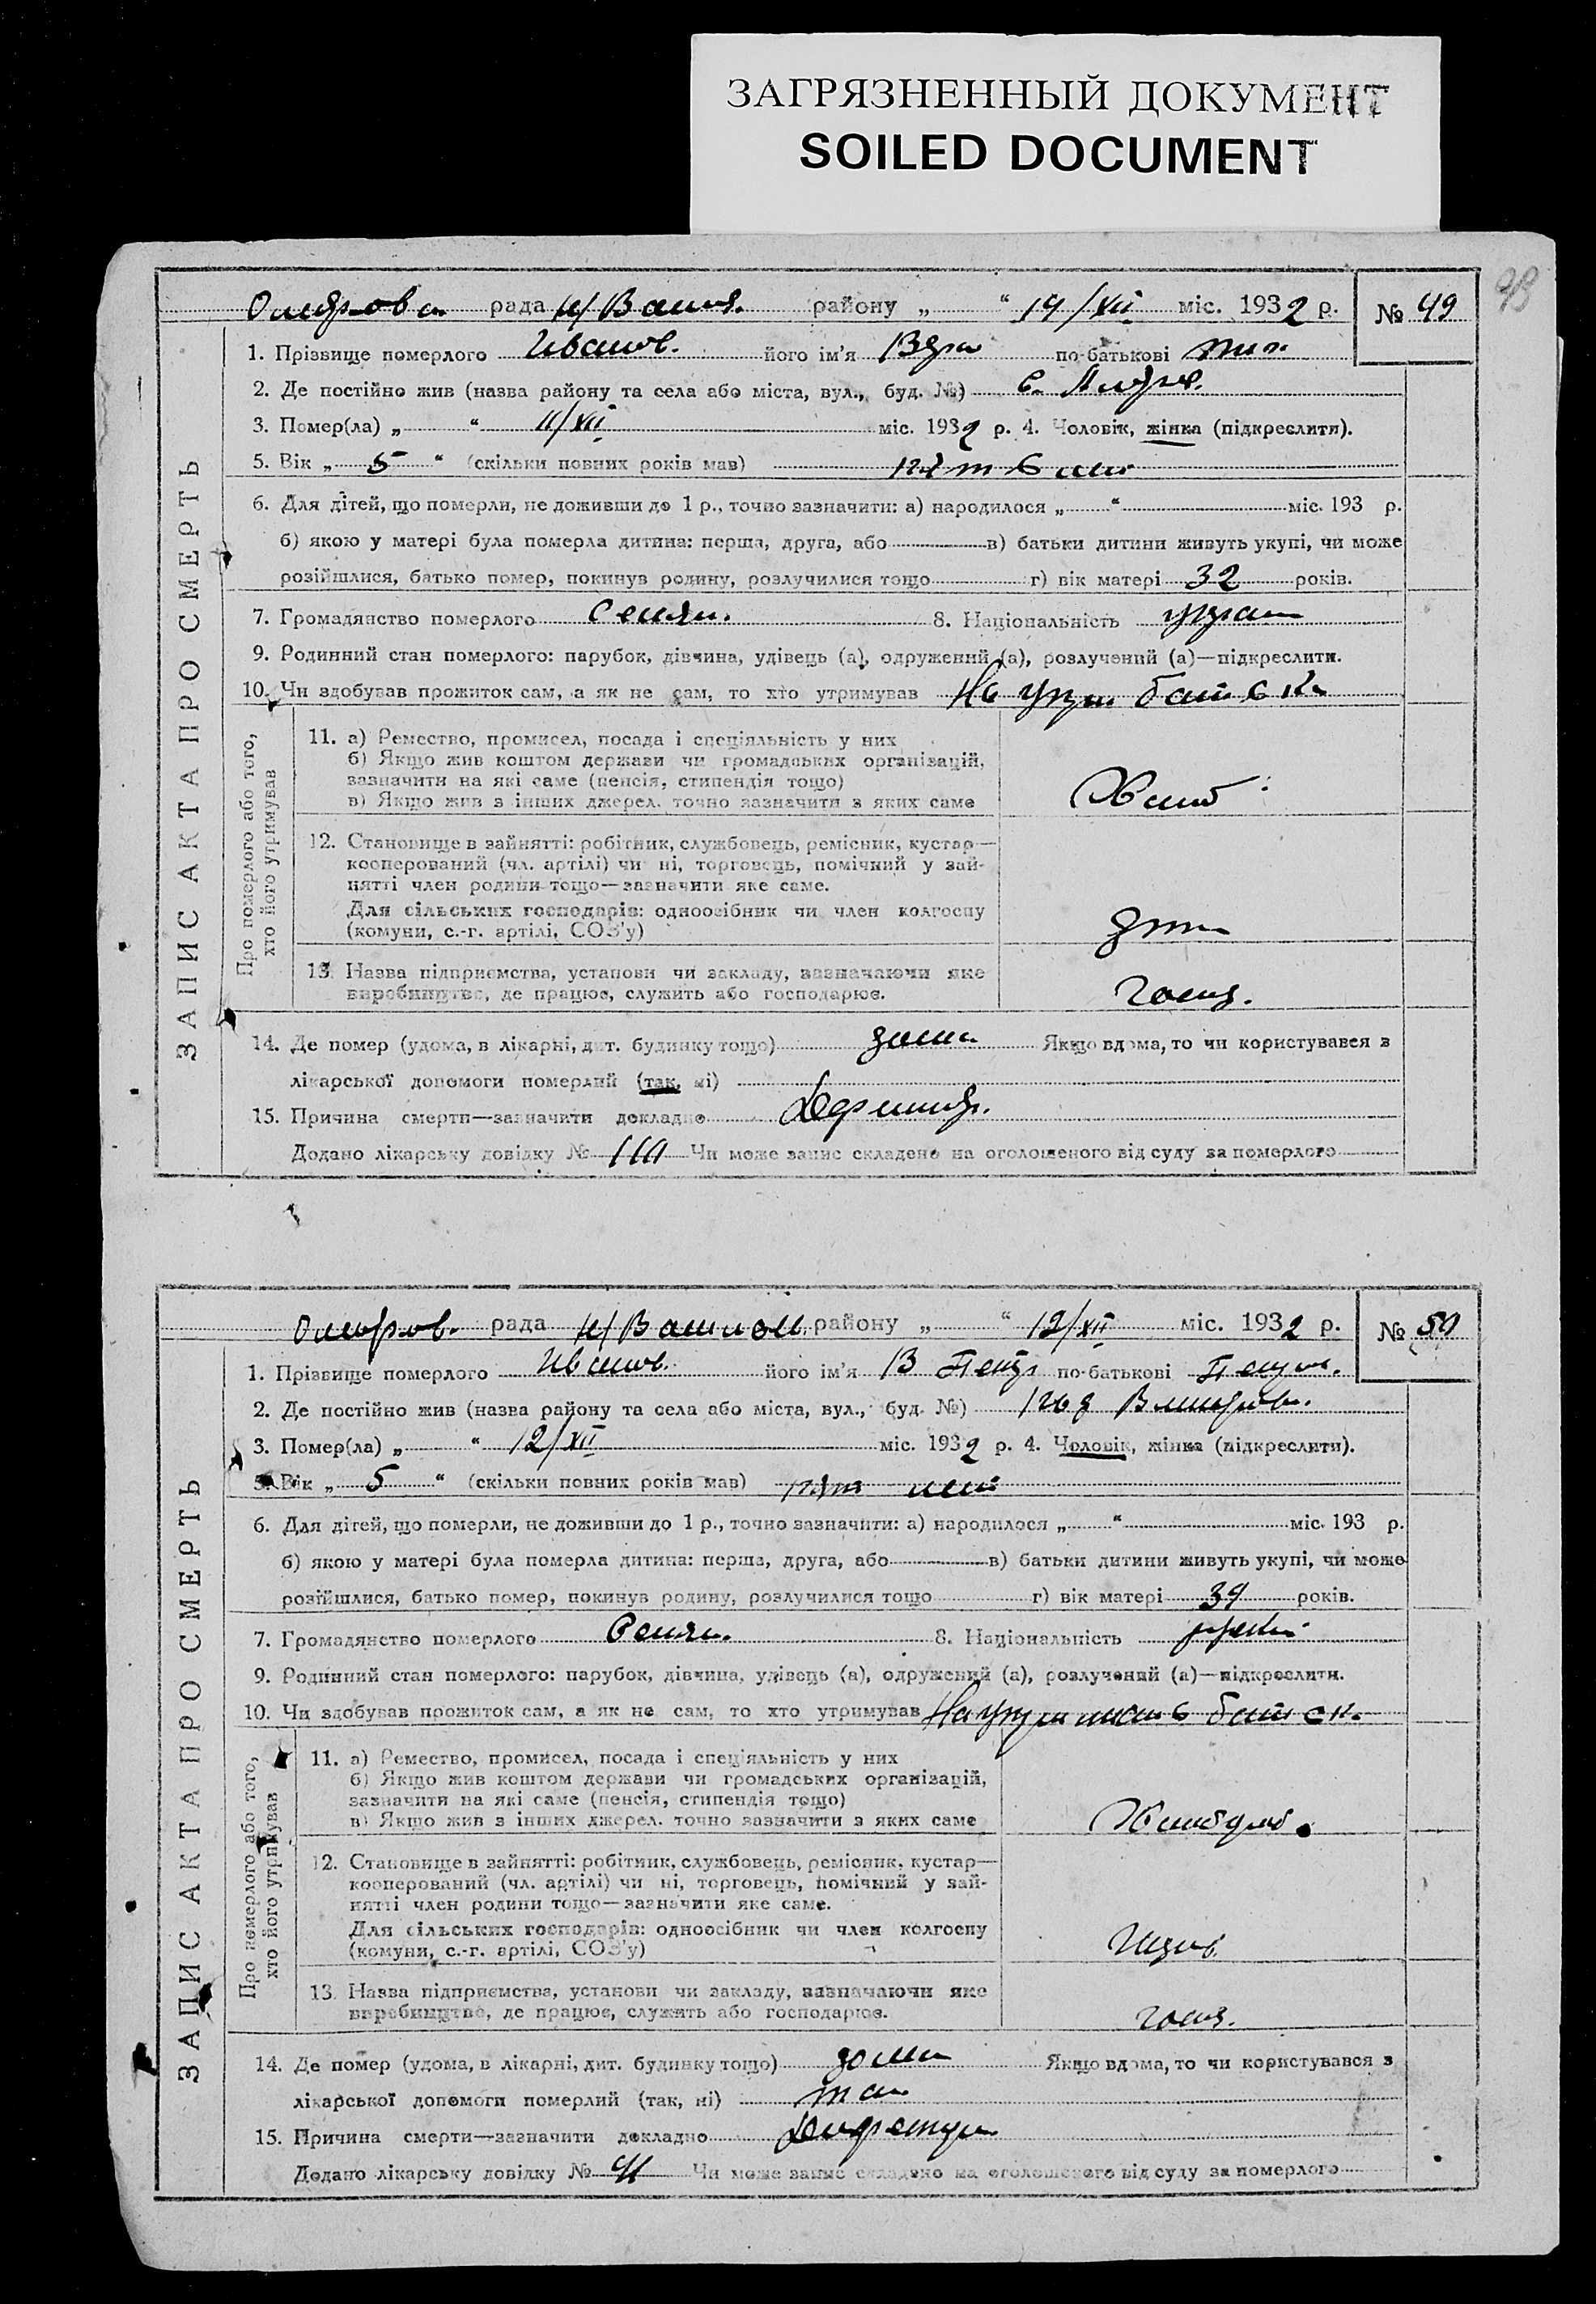 ЗАГРЯЗНЕННЫЙ ДОКУМЕНТ
SOILED DOCUMENT
ЗАПИС АКТА ПРО СМЕРТЬ
рада району „ “ 14/XII міс. 1932 р. № 49
1. Прізвище померлого його ім'я по-батькові
2. Де постійно жив (назва району та села або міста, вул., буд. №) с.
3. Помер(ла) „ “ 11/XII міс. 1932 р. 4. Чоловік, жінка (підкреслити).
5. Вік „ 5 “ (скільки повних років мав)
6. Для дітей, що померли, не доживши до 1 р., точно зазначити: а) народилося „ “ міс. 193 р.
б) якою у матері була померла дитина: перша, друга, або в) батьки дитини живуть укупі, чи може
розійшлися, батько помер, покинув родину, розлучилися тощо г) вік матері 32 років.
7. Громадянство померлого Селян. 8. Національність
9. Родинний стан померлого: парубок, дівчина, удівець (а), одружений (а), розлучений (а)—підкреслити.
10. Чи здобував прожиток сам, а як не сам, то хто утримував На
Про померлого або того,
хто його утримував
11. а) Ремество, промисел, посада і спеціяльність у них
б) Якщо жив коштом держави чи громадських організацій,
зазначити на які саме (пенсія, стипендія тощо)
в) Якщо жив з інших джерел. точно зазначити з яких саме
Хліб
12. Становище в зайнятті: робітник, службовець, ремісник, кустар—
кооперований (чл. артілі) чи ні, торговець, помічний у зай-
нятті член родини тощо—зазначити яке саме.
Для сільських господарів: одноосібник чи член колгоспу
(комуни, с.-г. артілі, СОЗ'у)
13. Назва підприємства, установи чи закладу, зазначаючи яке
виробництво, де працює, служить або господарює.
14. Де помер (удома, в лікарні, дит. будинку тощо) дома Якщо вдома, то чи користувався з
лікарської допомоги померлий (так, ні)
15. Причина смерти—зазначити докладно
Додано лікарську довідку № Чи може запис складено на оголошеного від суду за померлого
ЗАПИС АКТА ПРО СМЕРТЬ
рада району „ “ 12/XII міс. 1932 р. № 50
1. Прізвище померлого його ім'я по-батькові
2. Де постійно жив (назва району та села або міста, вул., буд. №)
3. Помер(ла) „ “ 12/XII міс. 1932 р. 4. Чоловік, жінка (підкреслити).
5. Вік „ 5 “ (скільки повних років мав)
6. Для дітей, що померли, не доживши до 1 р., точно зазначити: а) народилося „ “ міс. 193 р.
б) якою у матері була померла дитина: перша, друга, або в) батьки дитини живуть укупі, чи може
розійшлися, батько помер, покинув родину, розлучилися тощо г) вік матері років.
7. Громадянство померлого Селян. 8. Національність
9. Родинний стан померлого: парубок, дівчина, удівець (а), одружений (а), розлучений (а)—підкреслити.
10. Чи здобував прожиток сам, а як не сам, то хто утримував На
Про померлого або того,
хто його утримував
11. а) Ремество, промисел, посада і спеціяльність у них
б) Якщо жив коштом держави чи громадських організацій,
зазначити на які саме (пенсія, стипендія тощо)
в) Якщо жив з інших джерел. точно зазначити з яких саме
12. Становище в зайнятті: робітник, службовець, ремісник, кустар—
кооперований (чл. артілі) чи ні, торговець, помічний у зай-
нятті член родини тощо—зазначити яке саме.
Для сільських господарів: одноосібник чи член колгоспу
(комуни, с.-г. артілі, СОЗ'у)
13. Назва підприємства, установи чи закладу, зазначаючи яке
виробництво, де працює, служить або господарює.
14. Де помер (удома, в лікарні, дит. будинку тощо) дома Якщо вдома, то чи користувався з
лікарської допомоги померлий (так, ні) так
15. Причина смерти—зазначити докладно
Додано лікарську довідку № Чи може запис складено на оголошеного від суду за померлого